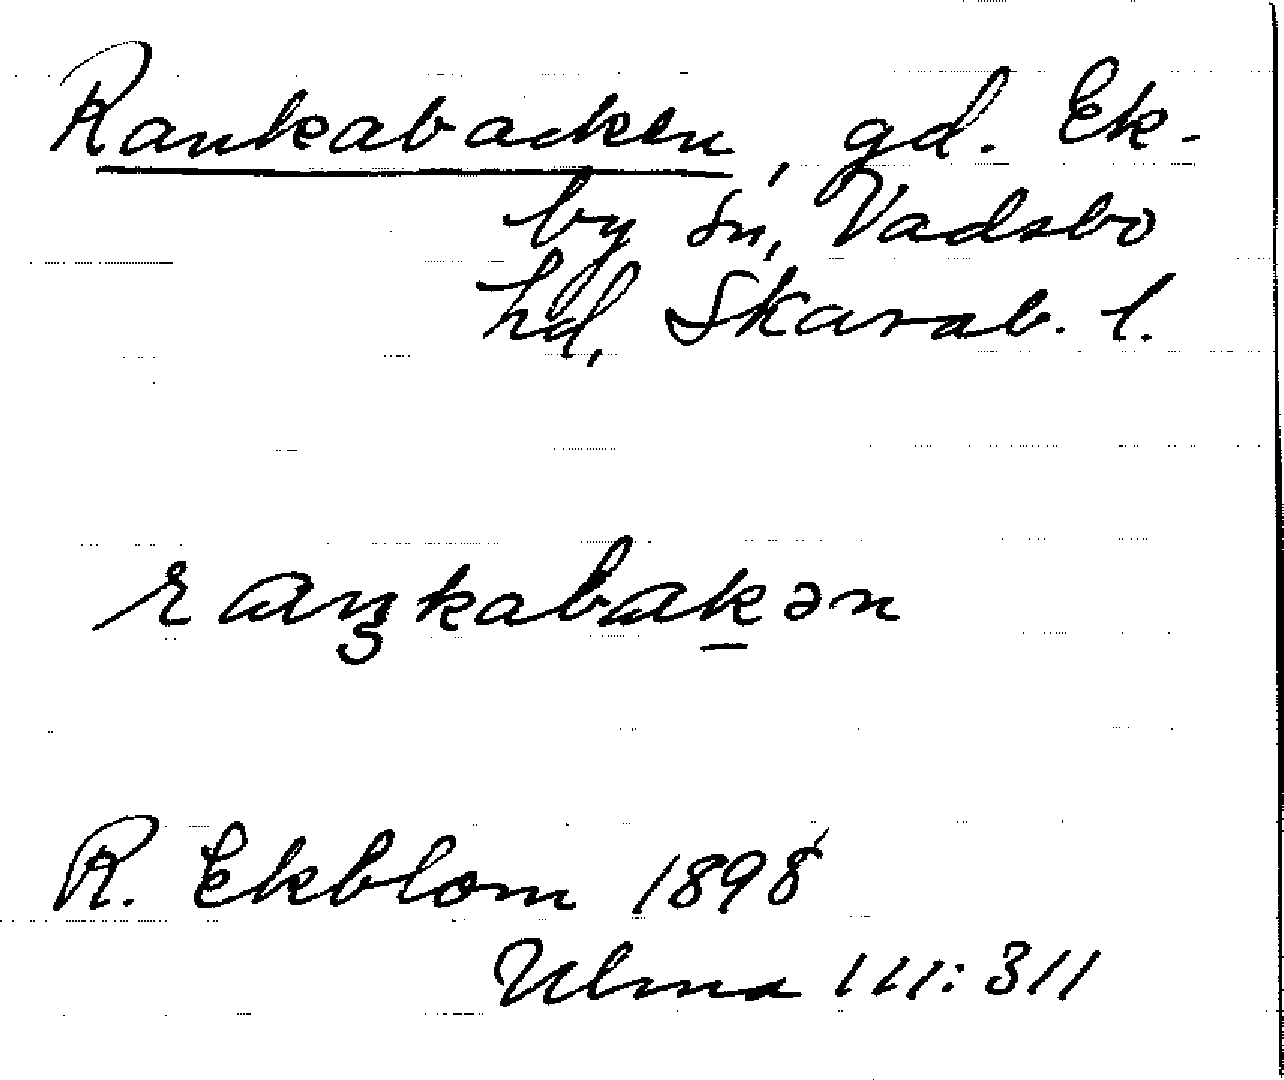 Rankabacken, gd. Ek-
by sn, Vadsbo
hd, Skarab. l.
raŋkabak̲ən
R. Ekblom 1898
Ulma 111:311